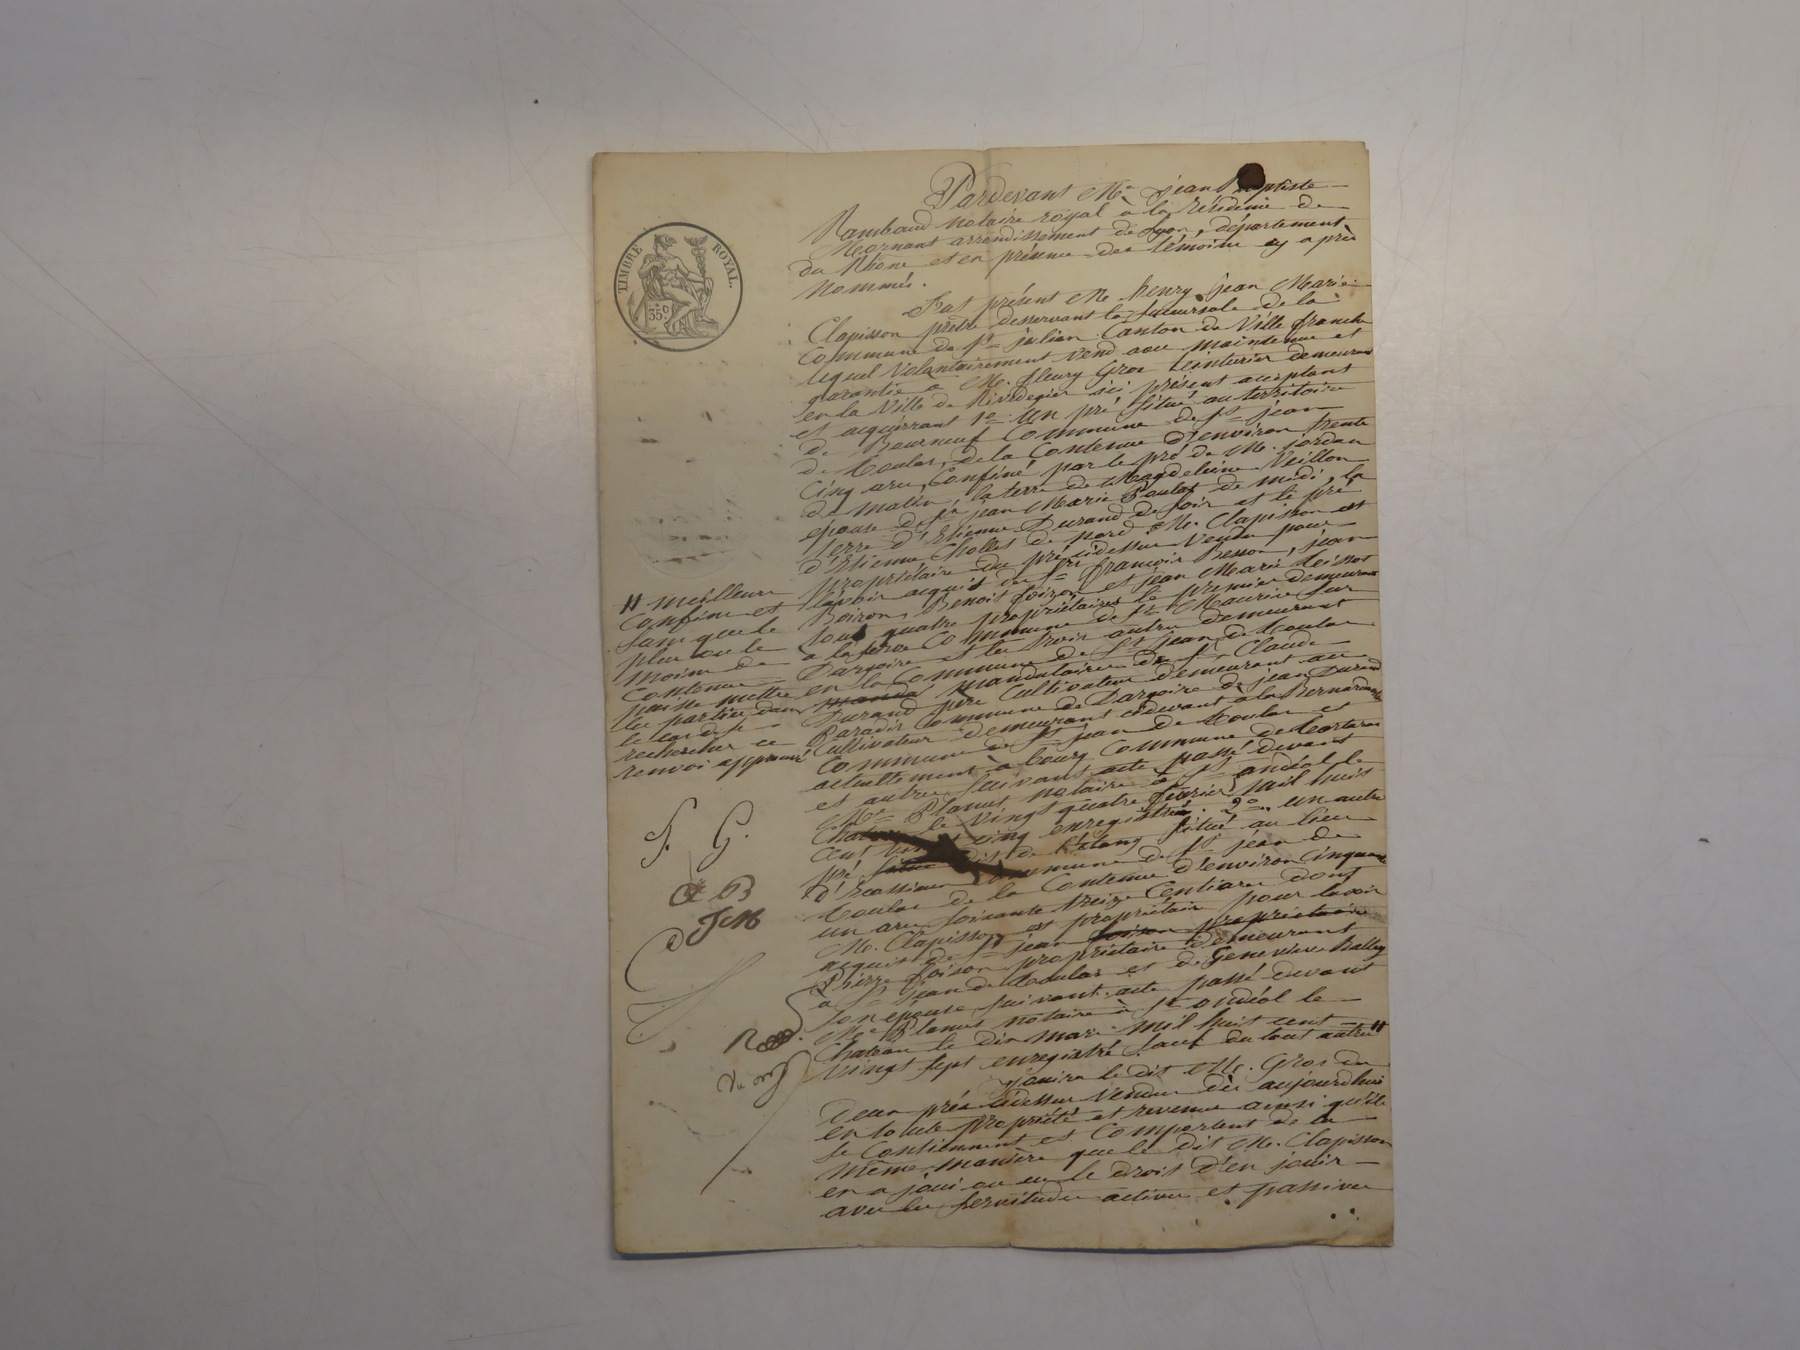 TIMBRE ROYAL.
35c
Pardevant Me jean Baptiste
Rambaud notaire royal à la Résidence de
Mornant arrondissement de Lyon, département
du Rhône et en présence des témoins cy après
nommés.
Fut présent M. henry jean Marie
Clapisson prêtre desservant la succursale de la
Commune de St julien Canton de Ville franche
lequel Volontairement vend avec maintenue et
garantie à M. fleury Gros teinturier demeurant
en la Ville de Rivedegier ici présent acceptant
et acquérrant 1o un pré situé au territoire
de Bourneuf Commune de St jean
de Toulas, de la Contenue d'environ trente
Cinq ares, Confiné par le pré de M. jordan
de matin, la terre de Magdeleine Veillon
épouse de St jean Marie Poulat de midi, la
terre d'Etienne Durand de soir et le pré
d'Etienne Chollet de nord M. Clapisson est
propriétaire du pré cidessus Vendu pour
l'avoir acquis de Srs françois Besson, jean
Boiron, Benoit foizon et jean Marie
tous quatre propriétaires le premier demeurant
à la Commune de St Maurice sur
Dargoire et les trois autres demeurant
en la Commune de St jean de Toulas
manda mandataires de Sr Claude
Durand père Cultivateur demeurant au
Paradis Commune de Dargoire de jean Durand
Cultivateur demeurant cidevant à la Bernardière
Commune de St jean de Toulas et
actuellement à bourg Commune de
et autres suivant acte passé devant
Me Planus notaire à St andéol le
Chateau le vingt quatre février mil huit
cent vingt cinq enregistré. 2o un autre
pré situé dit de l'étang situé au lieu
Commune de St jean de
Toulas de la Contenue d'environ Cinquante
un ares soixante treize Centiares dont
M. Clapisson est propriétaire pour l'avoir
acquis de Sr jean foison propriétaire
Pierre foison propriétaire demeurant
à St jean de Toulas et de Geneviève Bally
son épouse suivant acte passé devant
Me Planus notaire à St andéol le
Chateau le dix mars mil huit cent
vingt sept enregistré sauf du tout autre #
jouira le dit M. Gros des
deux prés cidessus Vendus dès aujourdhui
en toute propriété et revenus ainsi qu'ils
se Contiennent et Comportent de la
même manière que le dit M. Clapisson
en a joui ou eu le droit d'en jouir
avec les servitudes actives et passives
# meilleurs
Confins et
sans que le
plus ou le
moins de
Contenue
puisse mettre
les parties dans
le cas de se
rechercher ce
renvoi approuvé
f. G.
C B
JM